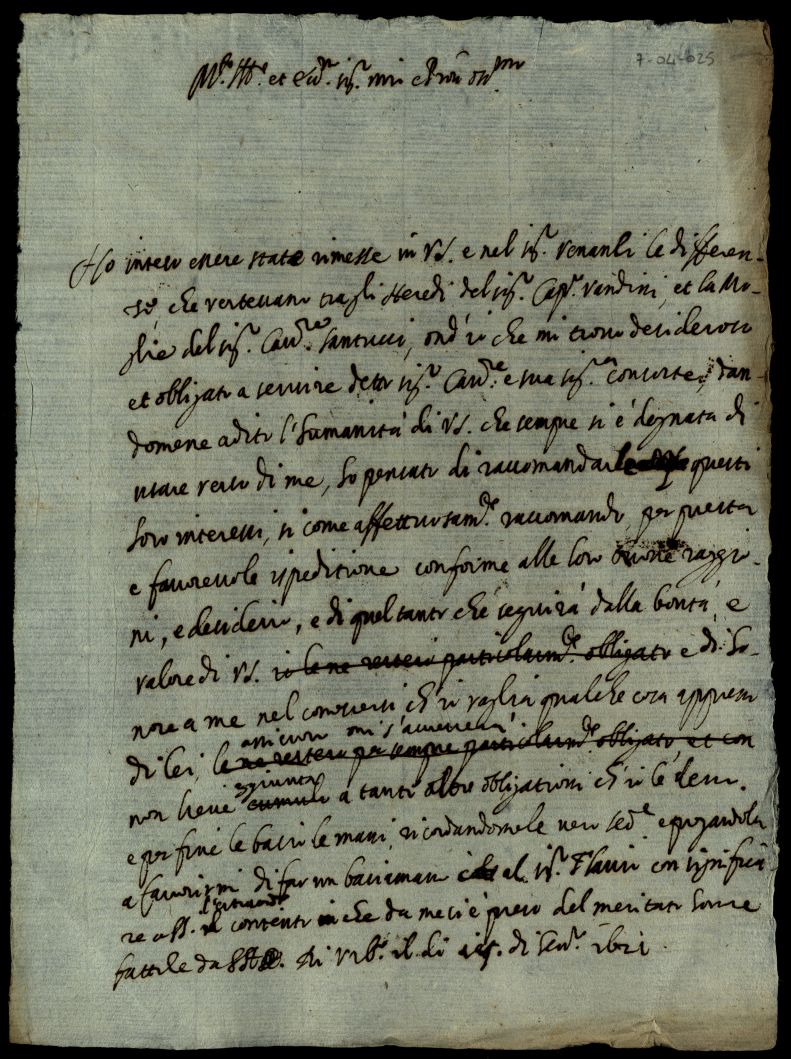 7-04-025
M.to Ill.re et Ecc.te sig.r mio et Pron oss.mo
Ho inteso essere state rimesse in VS. e nel sig.r Venanti le differen-
se, che vertevano tra gli Heredi del sig.r Cap.o Vandini, et la Mo-
glie del sig.r Cav.re Santucci, ond'io che mi trovo desideroso
et obligato a servire detto sig.r Cav.re e sua sig.ra consorte, dan-
domene adito l'humanità di VS. che sempre si è degnata di
usare verso di me, ho pensato di raccomandarle questi
loro interessi, si come affettuosam.te raccomando, per presta
e favorevole ispeditione conforme alle loro buone raggio-
ni, e desiderio, e di quel tanto che seguirà dalla bontà, e
valore di VS. io le ne resterò particolarm.te obligato e di ho-
nore a me nel conoscersi ch'io vaglia qualche cosa appresso
assicuro mi s'accrescerà
di lei, le ne resterò per sempre particolarm.te obligato et con
aggiunta
non lieve cumulo a tanti altre obligationi ch'io le devo.
e per fine le bacio le mani, ricordandomele vero se.re e pregandola
a favorirmi di far un baciamano al sig.r Flavio con significa
re a SS. il contento che da me si è preso del meritato honore
fattile da SA. Di Urb.o il di di Gen.o 1621